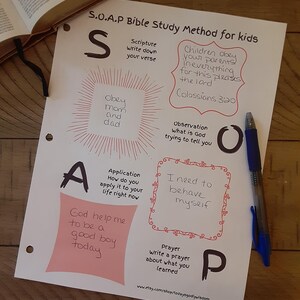 S.O.A.P Bible Study Method for kids
S
Scripture
write down
your verse
Children obey
your parents
in everything
for this pleases
the Lord
Colossians 3:20
obey
mom
and
dad
O
Observation
what is God
trying to tell you
A
Application
How do you
apply it to your
life right now
I need to
behave
myself
God help me
to be a
good boy
today
P
Prayer
write a prayer
about what you
learned